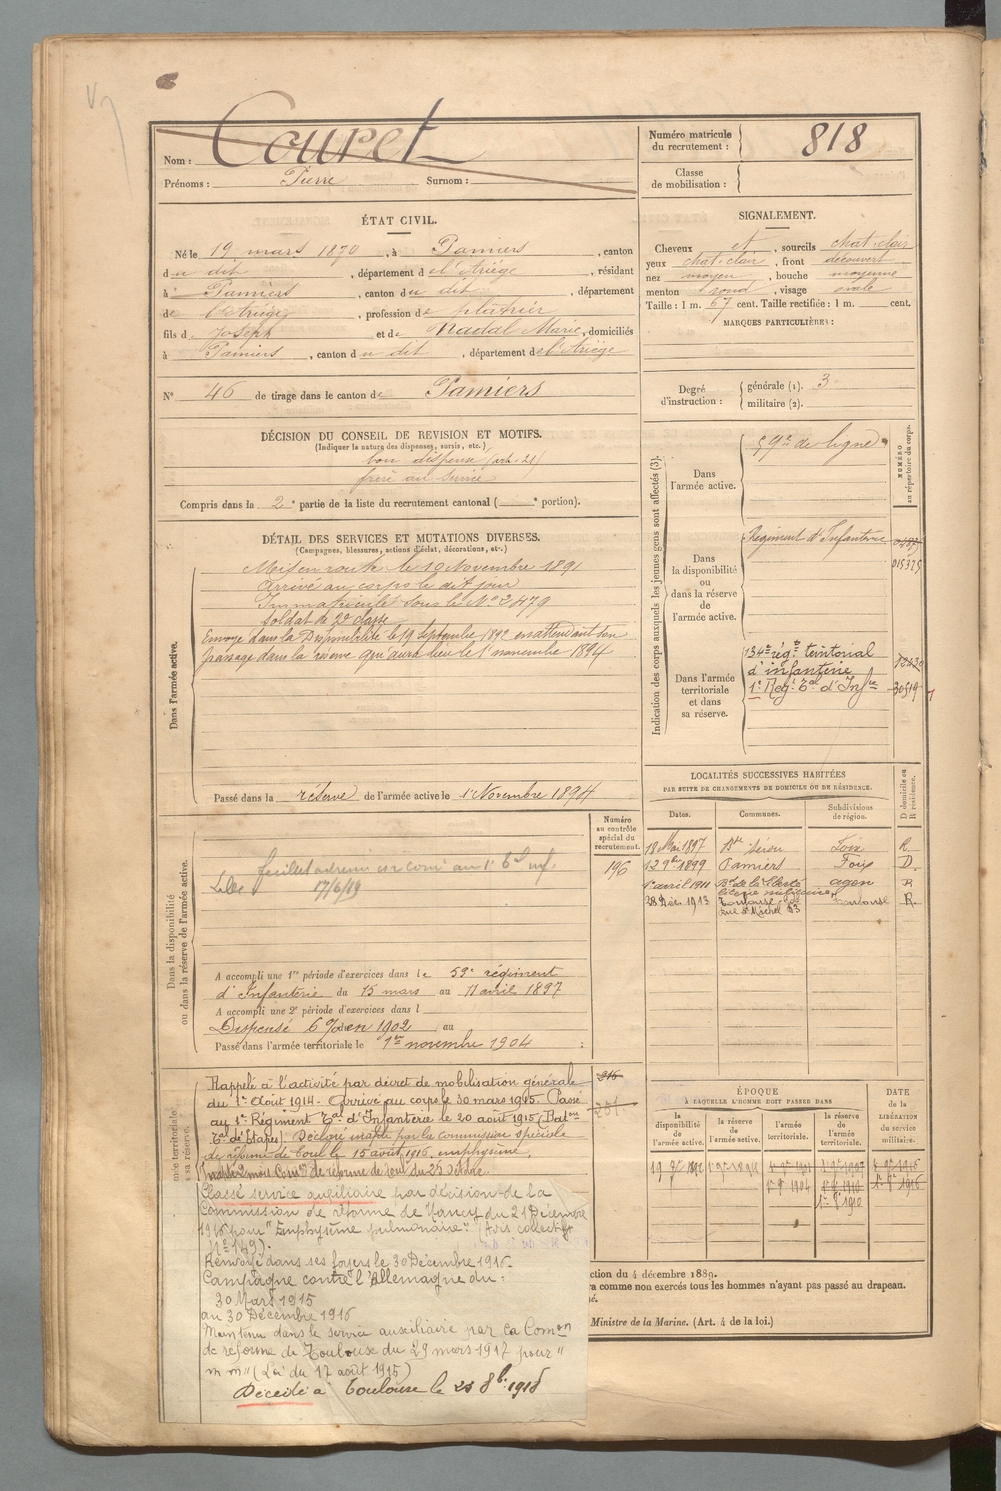 Nom : Couret
Prénoms : Pierre Surnom :
Numéro matricule du recrutement : 818
Classe de mobilisation :
ÉTAT CIVIL.
Né le 19 mars 1870, à Pamiers, canton
du dit, département de l'Ariège, résidant
à Pamiers, canton du dit, département
de l'Ariège, profession de plâtrier
fils de Joseph et de Nadal Marie, domiciliés
à Pamiers, canton du dit, département de l'Ariège
N° 46 de tirage dans le canton de Pamiers
SIGNALEMENT.
Cheveux et, sourcils chat. clair
yeux chat. clair, front découvert
nez moyen, bouche moyenne
menton rond, visage ovale
Taille : 1 m. 67 cent. Taille rectifiée : 1 m. cent.
MARQUES PARTICULIÈRES :
Degré d'instruction : générale (1). 3
militaire (2).
DÉCISION DU CONSEIL DE REVISION ET MOTIFS.
(Indiquer la nature des dispenses, sursis, etc.)
bon dispensé (art. 21)
frère au service
Compris dans la 2e partie de la liste du recrutement cantonal ( e portion).
DÉTAIL DES SERVICES ET MUTATIONS DIVERSES.
(Campagnes, blessures, actions d'éclat, décorations, etc.)
Dans l'armée active.
Mis en route le 10 Novembre 1891
Arrivé au corps le dit jour
Immatriculé sous le N° 2479
Soldat de 2e classe
Envoyé dans la Disponibilité le 19 Septembre 1892 en attendant son
passage dans la réserve qui aura lieu le 1er novembre 1894
Passé dans la réserve de l'armée active le 1er Novembre 1894
Indication des corps auxquels les jeunes gens sont affectés (3).
NUMÉRO au répertoire du corps.
Dans l'armée active.
59e de ligne
Dans la disponibilité ou dans la réserve de l'armée active.
Régiment d'Infanterie
015375
Dans l'armée territoriale et dans sa réserve.
134e rég.t territorial
d'infanterie
1er Reg.t Tal d'Infie
30519
LOCALITÉS SUCCESSIVES HABITÉES
PAR SUITE DE CHANGEMENTS DE DOMICILE OU DE RÉSIDENCE.
Dates. Communes. Subdivisions de région. D domicile ou R résidence.
18 Mai 1897 Foix R.
12 9bre 1899 Pamiers Foix D.
1er avril 1911 Bd de la liberté agen R
28 Déc. 1913 Toulouse rue St Michel 53 Toulouse R.
Dans la disponibilité ou dans la réserve de l'armée active.
Numéro au contrôle spécial du recrutement.
196
17/6/19
A accompli une 1re période d'exercices dans le 59e régiment
d'Infanterie du 15 mars au 11 avril 1897
A accompli une 2e période d'exercices dans l
Dispensé en 1902 au
Passé dans l'armée territoriale le 1er novembre 1904
Rappelé à l'activité par décret de mobilisation générale
du 1er Août 1914. Arrivé au corps le 30 mars 1915. Passé
au 1er Régiment Tal d'Infanterie le 20 août 1915 (Baton
Tal d'Etapes). Déclaré inapte par la commission spéciale
de réforme de Toul le 15 août 1916 emphysème.
Inapte 2 mois Comon de réforme de Toul du 25 Octobre.
Classé service auxiliaire par décision de la
Commission de réforme de Nancy du 21 Décembre
1916 pour "Emphysème pulmonaire". (Avis collectif
N° 149).
Renvoyé dans ses foyers le 30 Décembre 1916.
Campagne contre l'Allemagne du :
30 Mars 1915
au 30 Décembre 1916
Maintenu dans le service auxiliaire par la Comon
de réforme de Toulouse du 29 mars 1917 pour "
m m" (Loi du 17 août 1915)
Décédé à Toulouse le 8bre 1918
ÉPOQUE
À LAQUELLE L'HOMME DOIT PASSER DANS
la disponibilité de l'armée active. la réserve de l'armée active. l'armée territoriale. la réserve de l'armée territoriale.
DATE de la LIBÉRATION du service militaire.
ction du 4 décembre 1889.
ra comme non exercés tous les hommes n'ayant pas passé au drapeau.
Ministre de la Marine. (Art. 4 de la loi.)